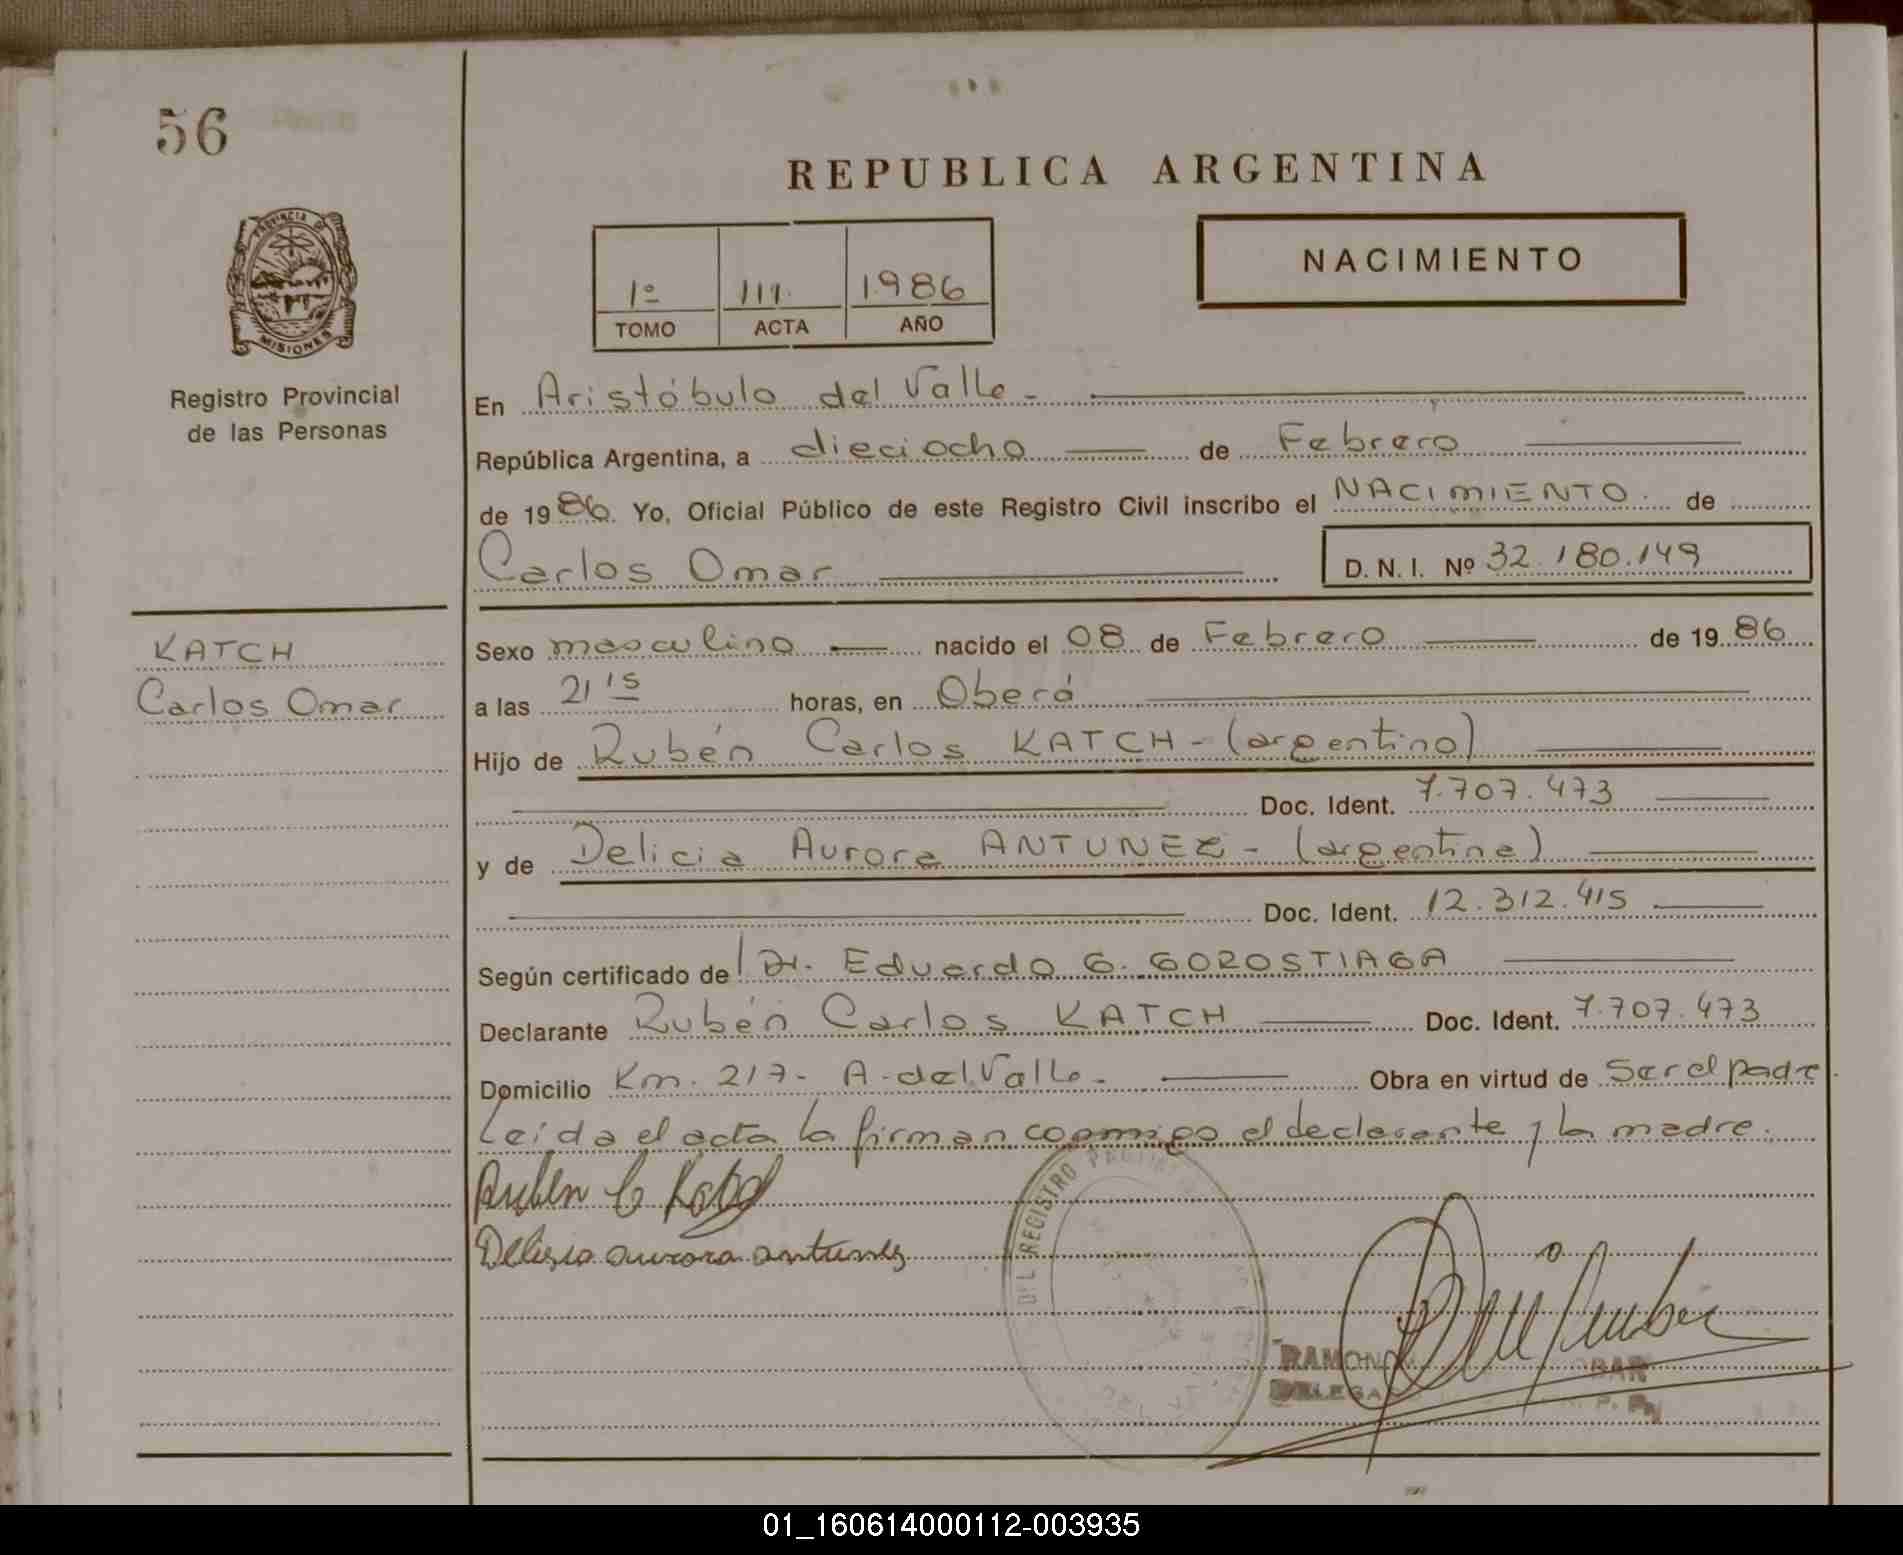 56
REPUBLICA ARGENTINA
PROVINCIA DE
MISIONES
Registro Provincial
de las Personas
NACIMIENTO
1º 111. 1986
TOMO ACTA AÑO
En Aristóbulo del Valle -
República Argentina, a dieciocho de Febrero
de 1986. Yo, Oficial Público de este Registro Civil inscribo el NACIMIENTO. de
Carlos Omar D. N. I. Nº 32.180.149
KATCH
Carlos Omar
Sexo masculino nacido el 08 de Febrero de 1986
a las 21 15 horas, en Oberá
Hijo de Rubén Carlos KATCH - (argentino)
Doc. Ident. 7.707.473
y de Delicia Aurora ANTUNEZ - (argentina)
Doc. Ident. 12.312.415
Según certificado de Dr. Eduardo G. GOROSTIAGA
Declarante Rubén Carlos KATCH Doc. Ident. 7.707.473
Domicilio Km. 217 - A. del Valle - Obra en virtud de Ser el padre.
Leída el acta la firman conmigo el declarante y la madre.
Ruben C Katch
Delisia aurora antunes
DEL REGISTRO
RAMON
DELEGA
01_160614000112-003935